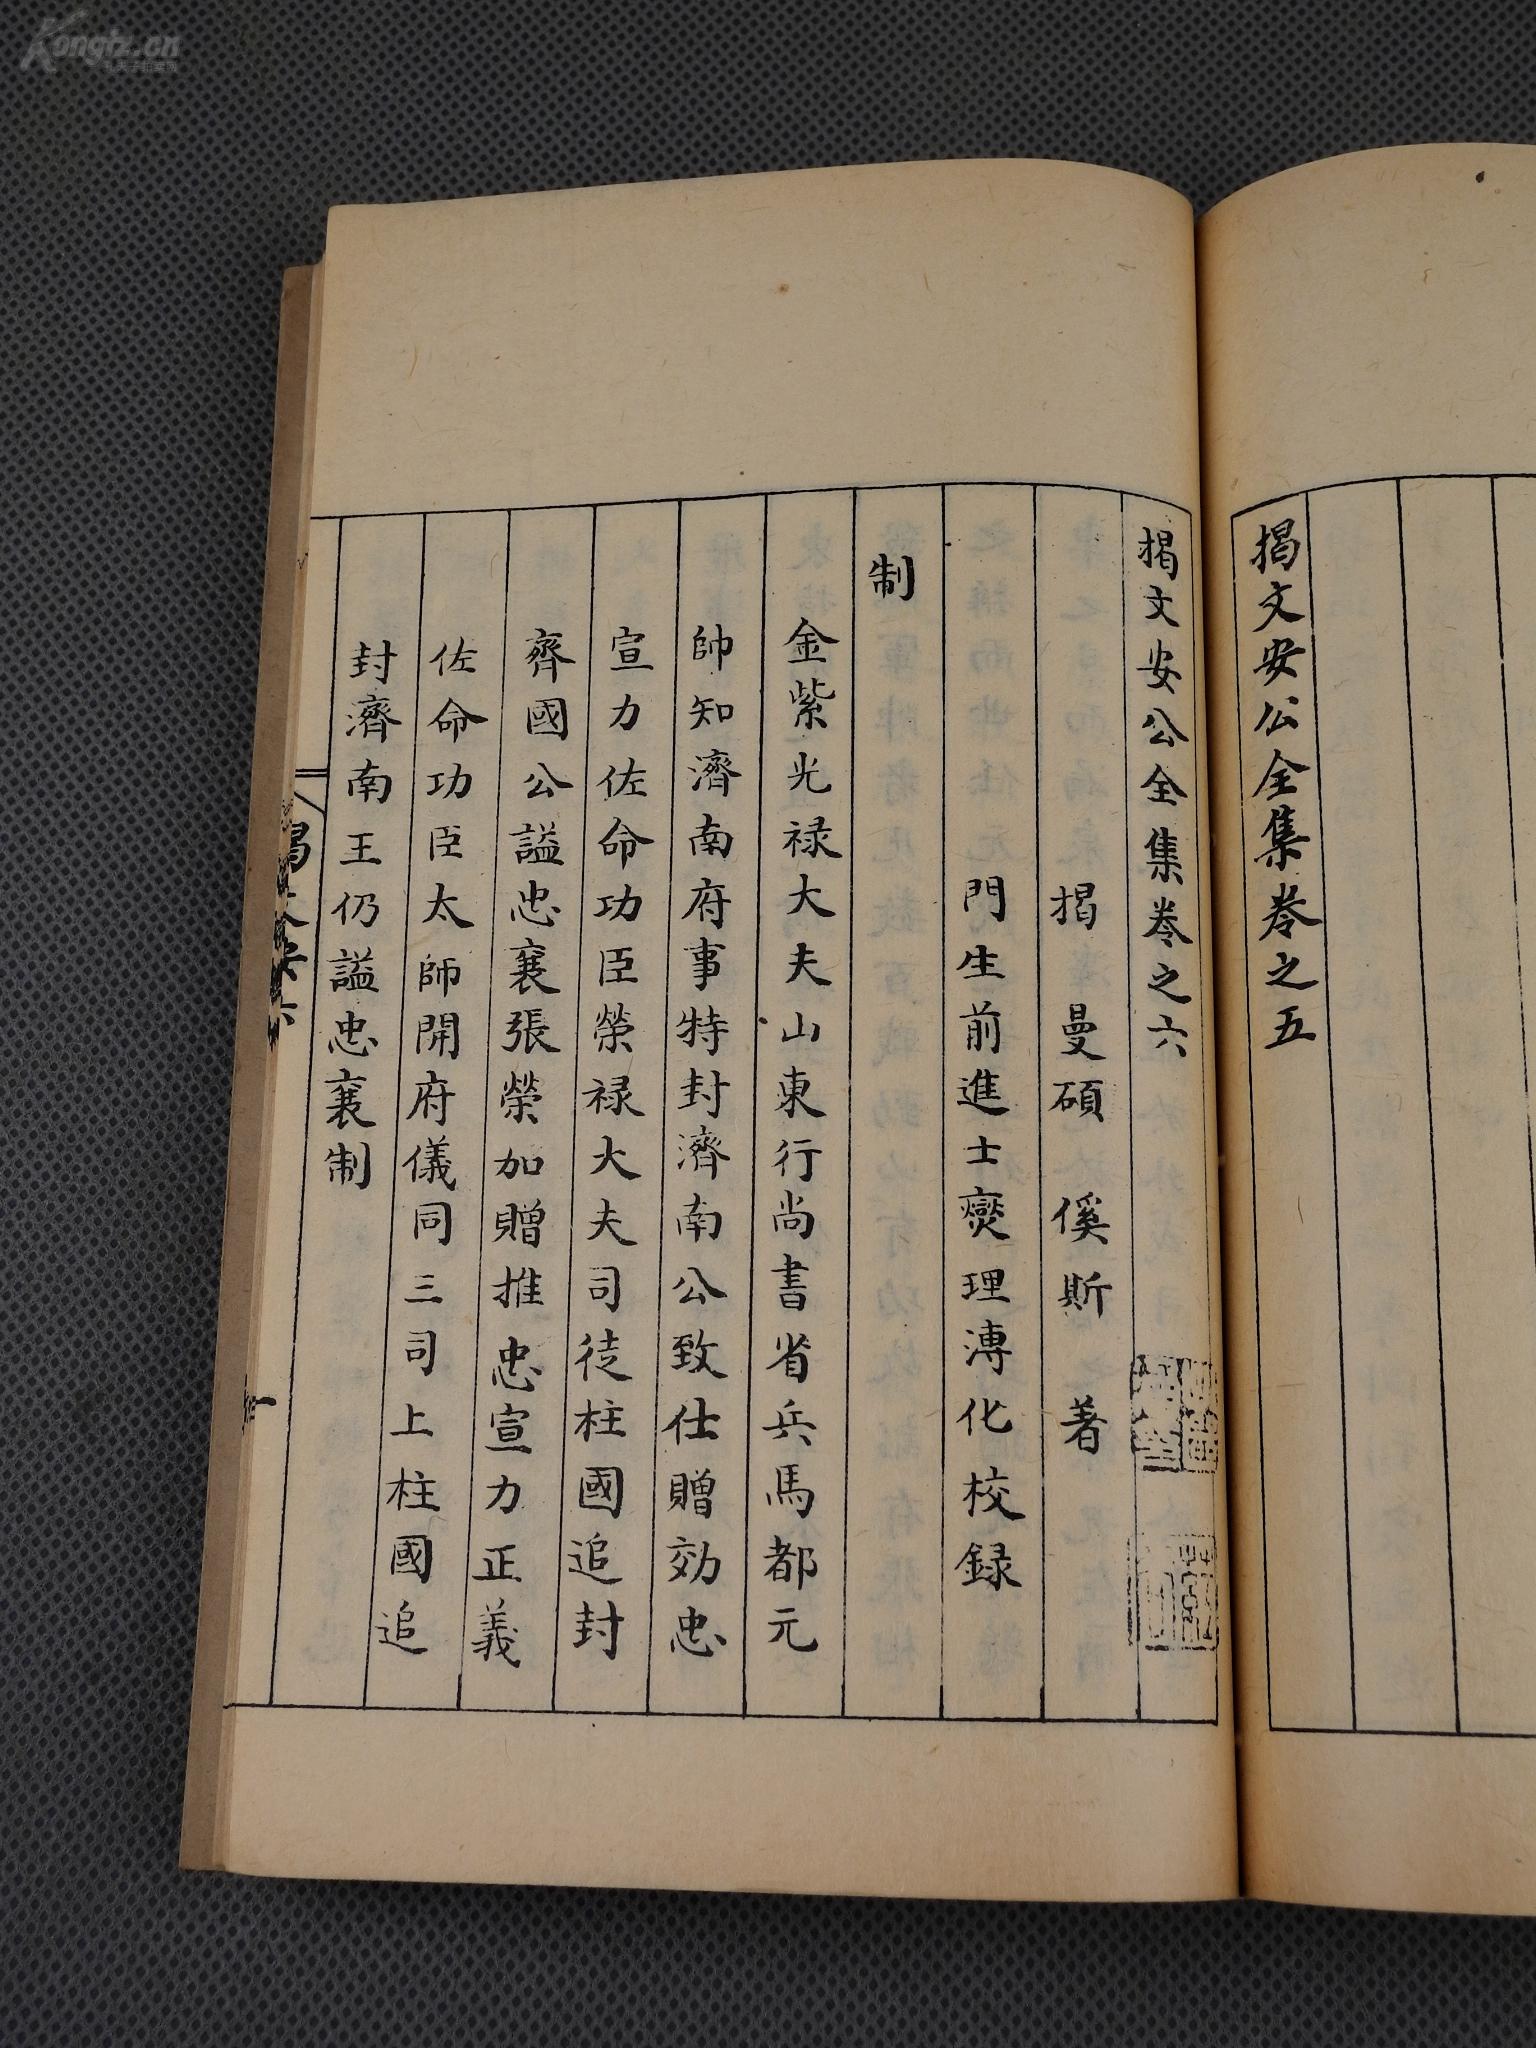 揭文安公全集卷之五
揭文安公全集卷之六
揭 曼碩 傒斯 著
門生前進士燮理溥化校録
制
金紫光禄大夫山東行尚書省兵馬都元
帥知濟南府事特封濟南公致仕贈効忠
宣力佐命功臣榮禄大夫司徒柱國追封
齊國公謚忠襄張榮加贈推忠宣力正義
佐命功臣太師開府儀同三司上柱國追
封濟南王仍謚忠襄制
Kongfz.cn
孔夫子拍卖网